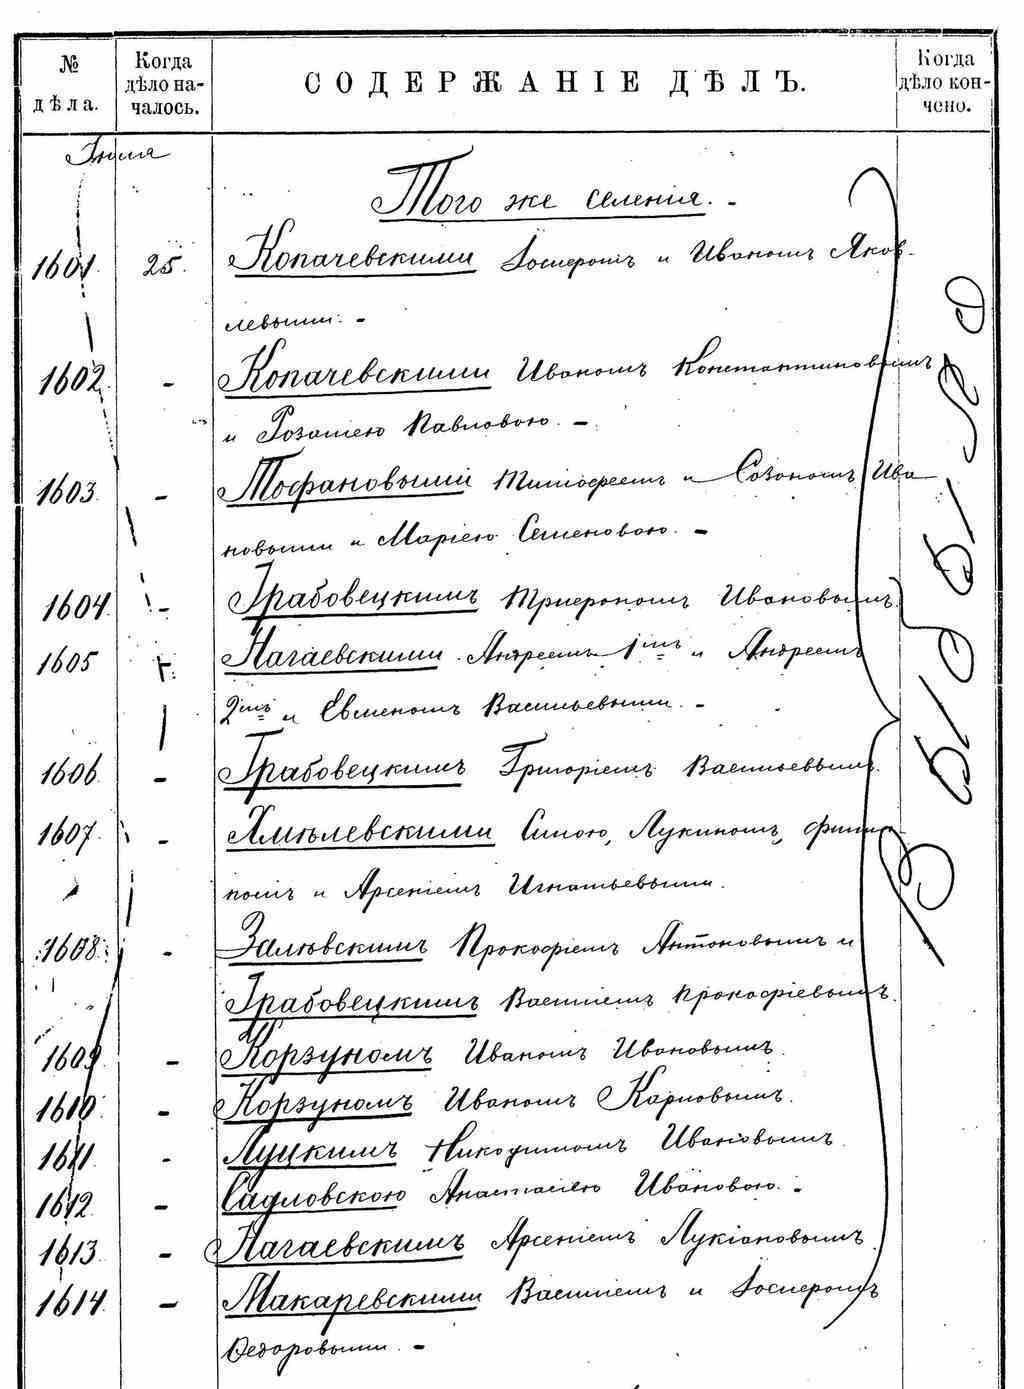 № дѣла.
Когда дѣло началось.
СОДЕРЖАНІЕ ДѢЛЪ.
Когда дѣло кончено.
Іюля
Того же селенія. -
1601. 25. Копачевскими Іосифомъ и Иваномъ Яков-
левыми. -
1602. - Копачевскими Иваномъ Константиновымъ
и Розаліею Павловою. -
1603. - Тофановыми Тимофеемъ и Созономъ Ива
новыми и Маріею Семеновою. -
1604. - Грабовецкимъ Трифономъ Ивановымъ.
1605 Нагаевскими Андреемъ 1мъ и Андреемъ
2мъ и Евменомъ Васильевыми. -
1606. - Грабовецкимъ Григоріемъ Васильевымъ.
1607. - Хмѣлевскими Силою, Лукиномъ, Филип-
помъ и Арсеніемъ Игнатьевыми.
1608. - Залювскимъ Прокофіемъ Антоновымъ и
Грабовецкимъ Василіемъ Прокофіевымъ.
1609 - Корзуномъ Иваномъ Ивановымъ.
1610. - Корзуномъ Иваномъ Карповымъ.
1611. - Луцкимъ Никодимомъ Ивановымъ.
1612. - Садловскою Анастасіею Ивановою. -
1613. - Нагаевскимъ Арсеніемъ Лукіановымъ.
1614. - Макаревскими Василіемъ и Іосифомъ
Федоровыми. -